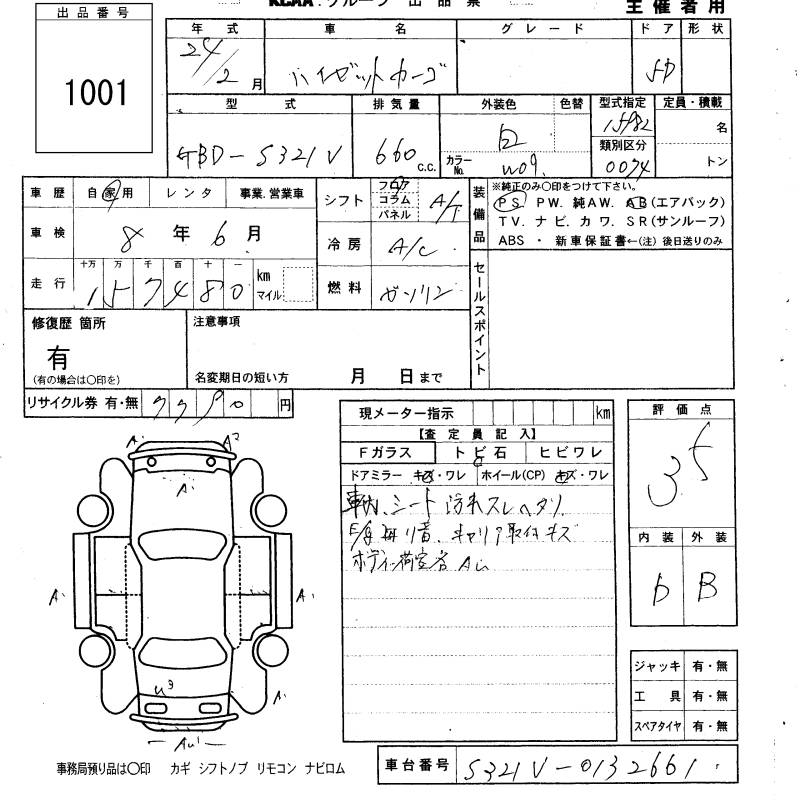 KCAA.グループ 出品票
主催者用
出品番号
1001
年式 車名 グレード ドア 形状
24/2月 ハイゼットカーゴ 5D
型式 排気量 外装色 色替 型式指定 定員・積載
GBD-S321V 660 c.c. 白 15982 名
カラーNo. W09. 類別区分 0074 トン
車歴 自家用 レンタ 事業.営業車
車検 8年6月
走行 十万 万 千 百 十 一
157480 km マイル
シフト フロア コラム パネル A/T
冷房 A/C
燃料 ガソリン
装備品
※純正のみ〇印をつけて下さい。
PS PW. 純AW. AB(エアバック)
TV. ナビ. カワ. SR(サンルーフ)
ABS ・ 新車保証書←(注) 後日送りのみ
セールスポイント
修復歴 箇所
有
(有の場合は〇印を)
注意事項
名変期日の短い方 月 日まで
リサイクル券 有・無 円
現メーター指示 km
【査定員記入】
Fガラス トビ石 ヒビワレ
ドアミラー キズ・ワレ ホイール(CP) キズ・ワレ
車内、シート 汚れスレヘタリ
キャリア取付キズ
評価点
3.5
内装 外装
D B
A' A²
A'
A' A'
U³ A'
ジャッキ 有・無
工具 有・無
スペアタイヤ 有・無
事務局預り品は〇印 カギ シフトノブ リモコン ナビロム
車台番号 S321V-0132661